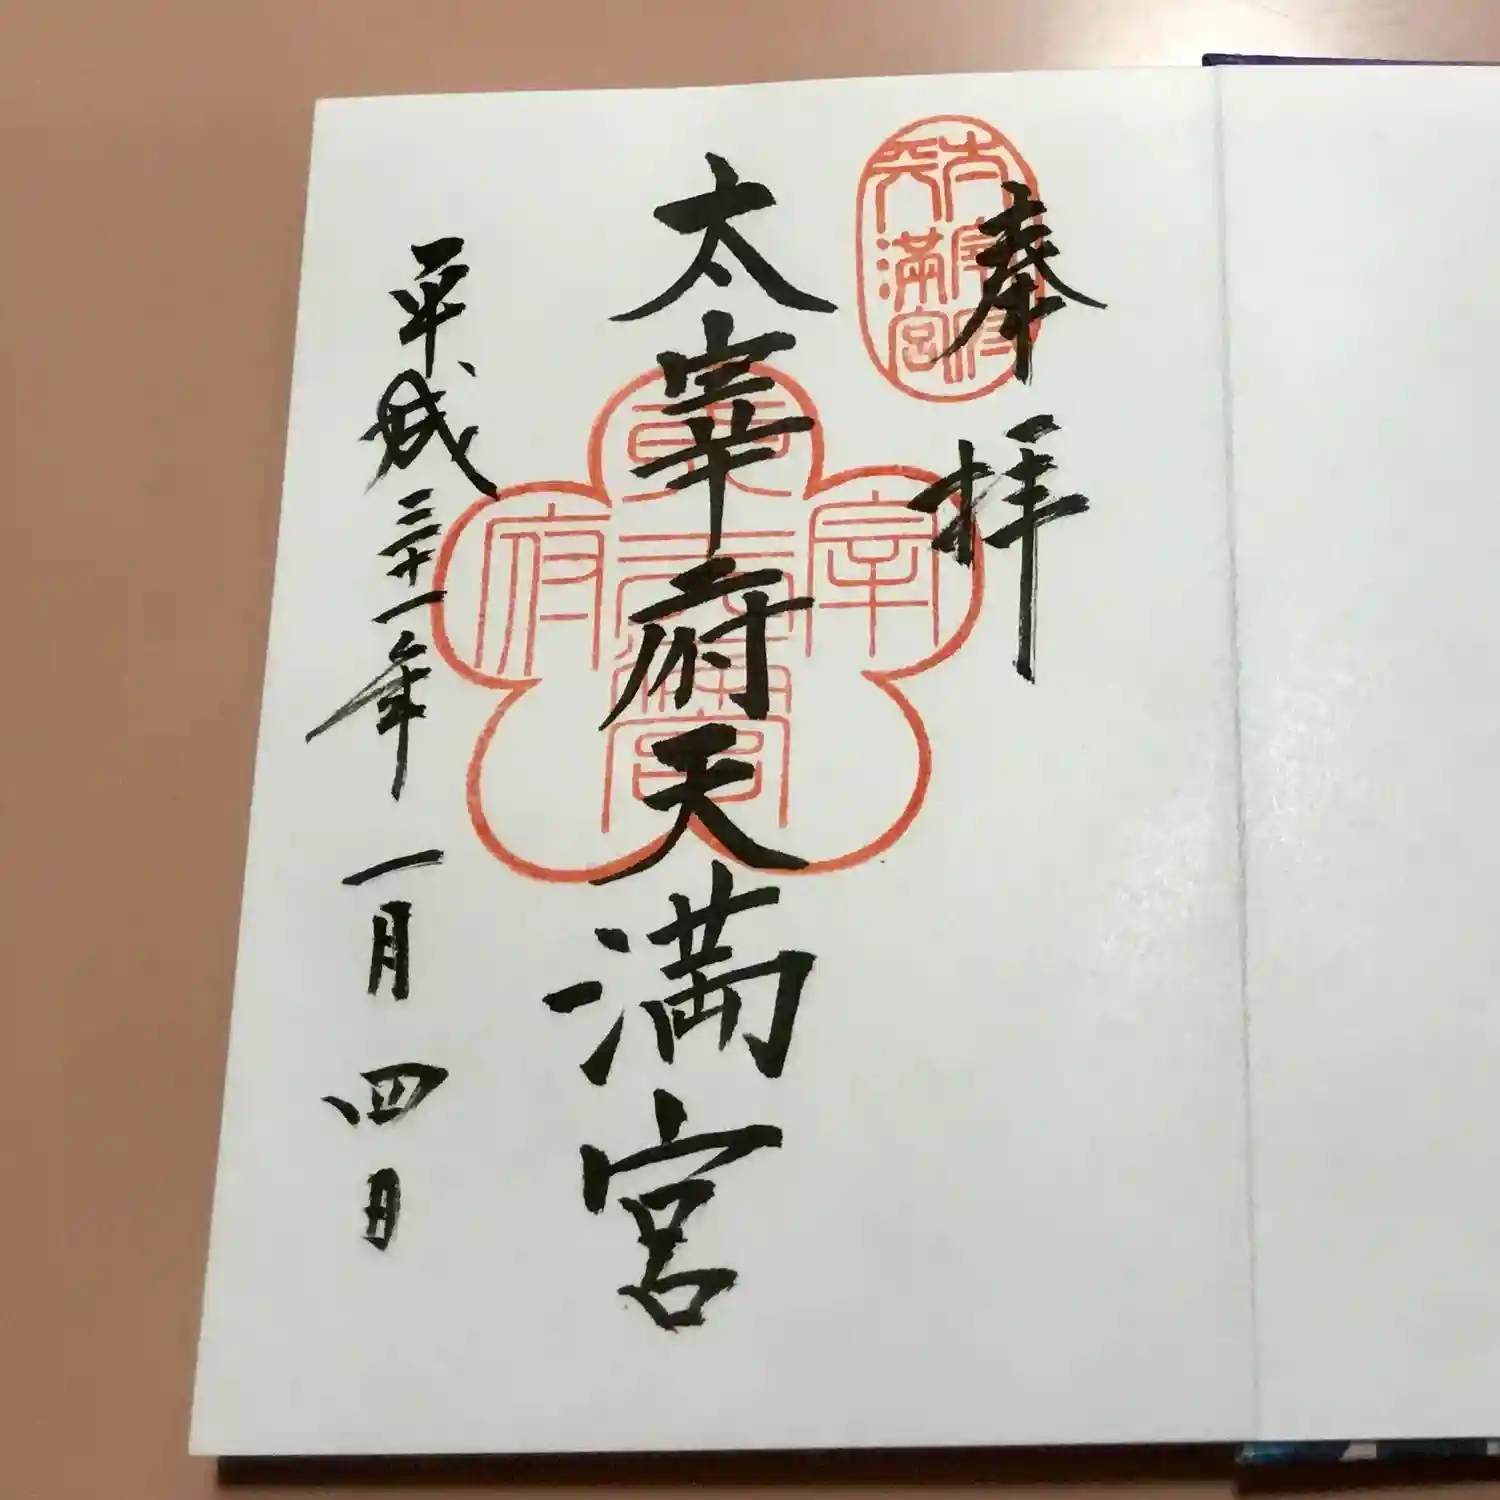 奉拝
太宰府天満宮
太宰府
天満宮
宰
府
天
満
宮
平成三十一年一月四日